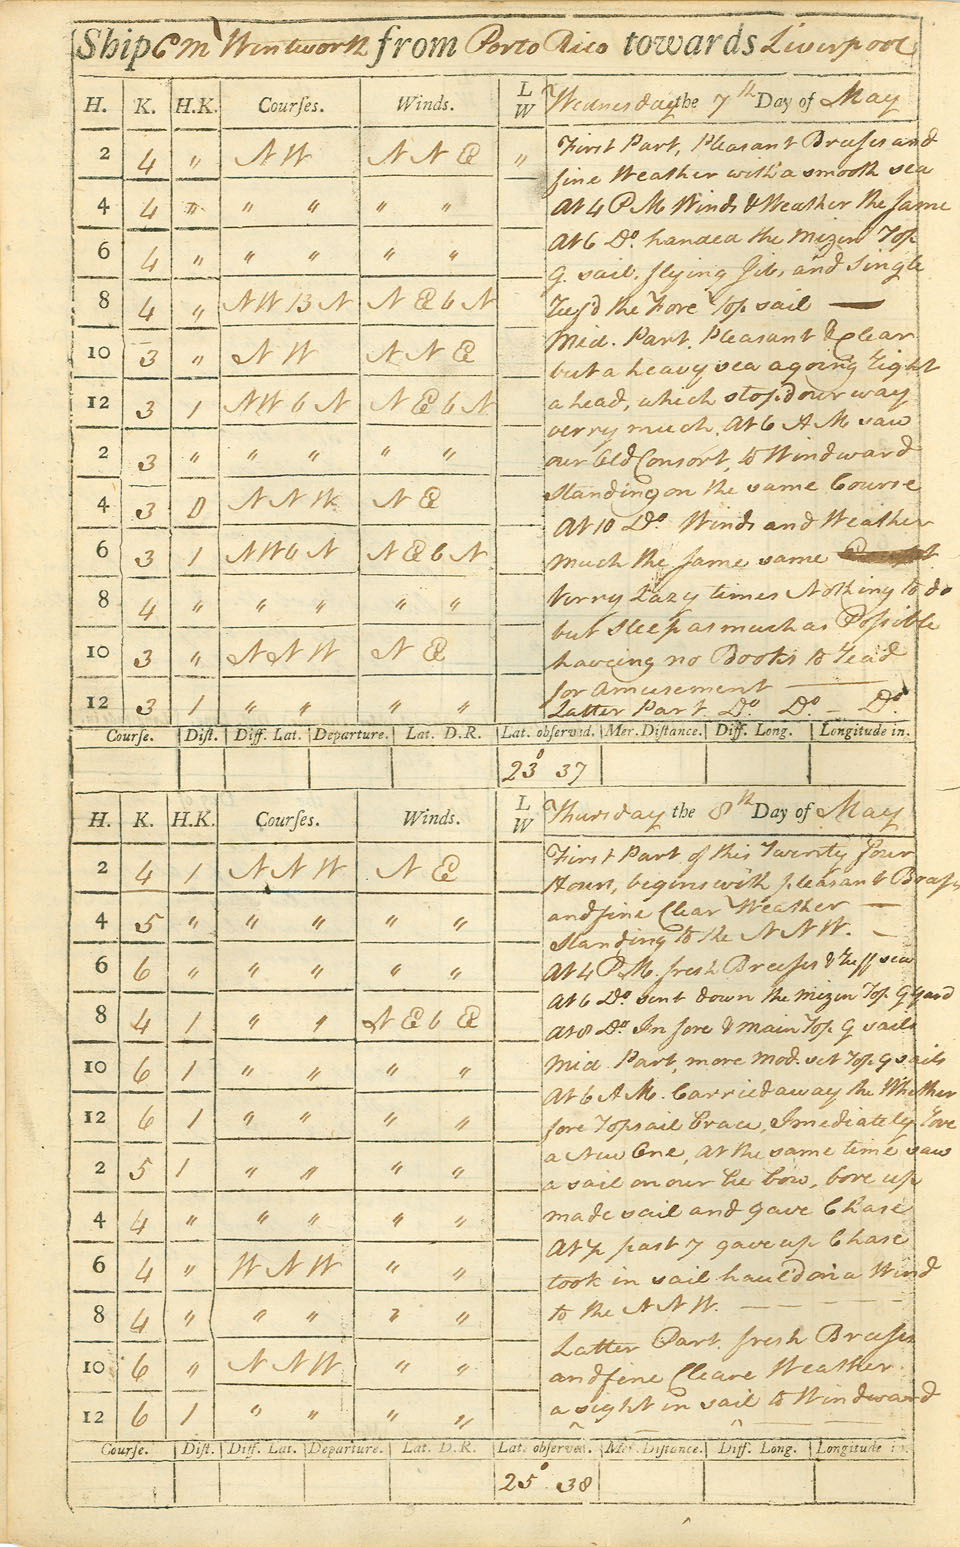 Ship G m Wentworth from Porto Rico towards Liverpool
H. K. H.K. Courses. Winds. L W Wednesday the 7th Day of May
2 4 " N W N N E "
4 4 " " " " "
6 4 " " " " "
8 4 " N W B N N E b N
10 3 " N W N N E
12 3 1 N W b N N E b N
2 3 " " " " "
4 3 0 N N W N E
6 3 1 N W b N N E b N
8 4 " " " " "
10 3 " N N W N E
12 3 1 " " " "
First Part, Pleasant Breeses and
fine Weather with a smooth sea
At 4 P M Winds & Weather the same
At 6 Do. handed the Mizen Top
G. sail, flying Jib, and Single
Reef'd the Fore Top sail —
Mid. Part. Pleasant & Clear
but a heavy sea a going Right
ahead, which stop'd our way
verry much. At 6 A M saw
our Old Consort, to Windward
standing on the same Course
At 10 Do. Winds and Weather
much the same same
Verry Lazy times Nothing to do
but Sleep as much as Possible
haveing no Books to Read
for Amusement —
Latter Part Do. Do. - Do.
Course. Dist. Diff. Lat. Departure. Lat. D.R. Lat. observed. Mer. Distance. Diff. Long. Longitude in.
23° 37
H. K. H.K. Courses. Winds. L W Thursday the 8th Day of May
2 4 1 N N W N E
4 5 " " " " "
6 6 " " " " "
8 4 1 " " N E b E
10 6 1 " " " "
12 6 1 " " " "
2 5 1 " " " "
4 4 " " " " "
6 4 " W N W " "
8 4 " " " " "
10 6 " N N W " "
12 6 1 " " " "
First Part of this Twenty four
Hours, begins with pleasant Breeses
and fine Clear Weather —
Standing to the N N W. —
At 4 P M. fresh Breeses & Ruff sea
At 6 Do. sent down the Mizen Top G yard
At 8 Do. In fore & main Top G sails
Mid Part, more Mod. set Top G sails
At 6 A M. Carried away the Whether
fore Topsail Brace, Imediately Rove
a New One, At the same time saw
a sail on our Lee bow, bore up
made sail and gave Chase
At ½ past 7 gave up Chase
took in sail haul'd on a Wind
to the N N W. — — — —
Latter Part fresh Breeses
and fine Cleare Weather
a sight in sail to Windward
Course. Dist. Diff. Lat. Departure. Lat. D.R. Lat. observed. Mer. Distance. Diff. Long. Longitude in.
25° 38